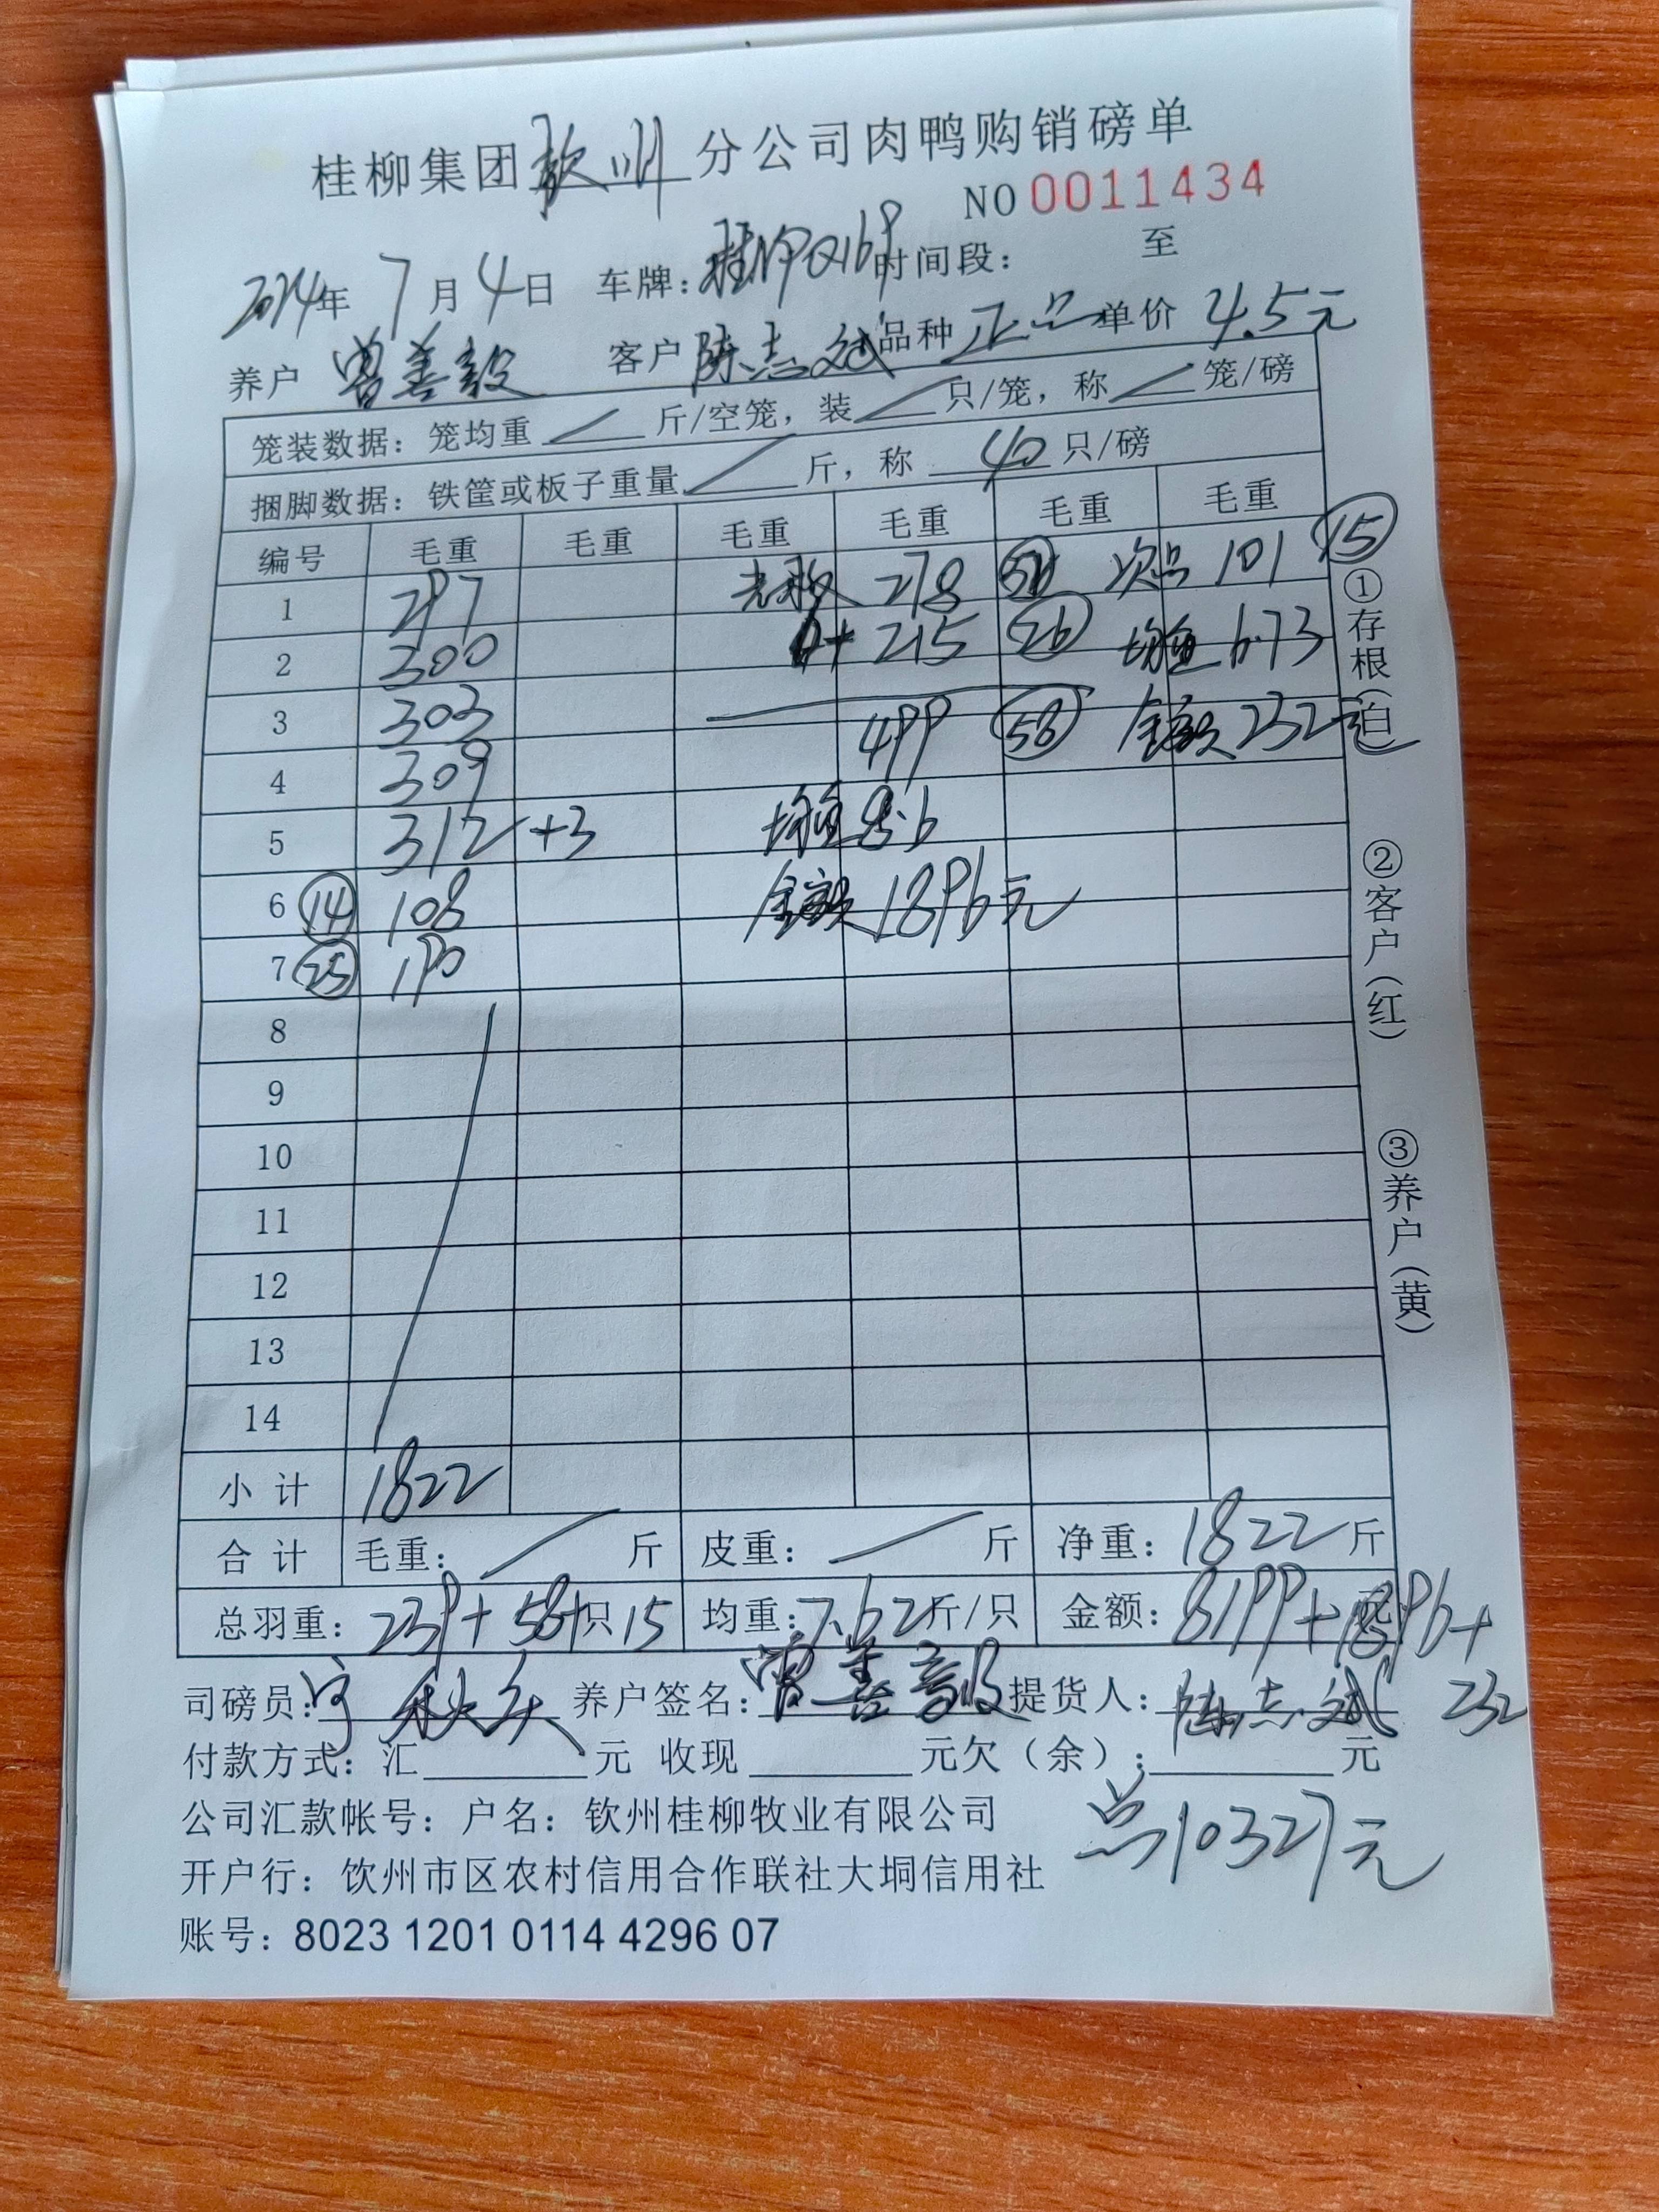 桂柳集团钦州分公司肉鸭购销磅单
NO 0011434
2024年 7月4日 车牌: 时间段: 至
养户 曾善毅 客户 陈志斌 品种 正品 单价 4.5元
笼装数据: 笼均重 / 斤/空笼, 装 / 只/笼, 称 / 笼/磅
捆脚数据: 铁筐或板子重量 / 斤, 称 40 只/磅
编号 毛重 毛重 毛重 毛重 毛重 毛重
1 297 278 次品 101 ⑮
2 300 215 ㉖ 均重 6.73
3 303 499 58 金额 232元
4 309
5 312 +3 均重 8.6
6 ⑭ 108 金额 1896元
7 ㉕ 190
8
9
10
11
12
13
14
小计 1822
合计 毛重: / 斤 皮重: / 斤 净重: 1822 斤
总羽重: 239+58+只15 均重: 7.62 斤/只 金额: 8199+1896+
232
司磅员: 养户签名: 曾善毅 提货人: 陈志斌
付款方式: 汇 元 收现 元欠(余): 元
公司汇款帐号: 户名: 钦州桂柳牧业有限公司
总10327元
开户行: 饮州市区农村信用合作联社大垌信用社
账号: 8023 1201 0114 4296 07
①存根(白)
②客户(红)
③养户(黄)